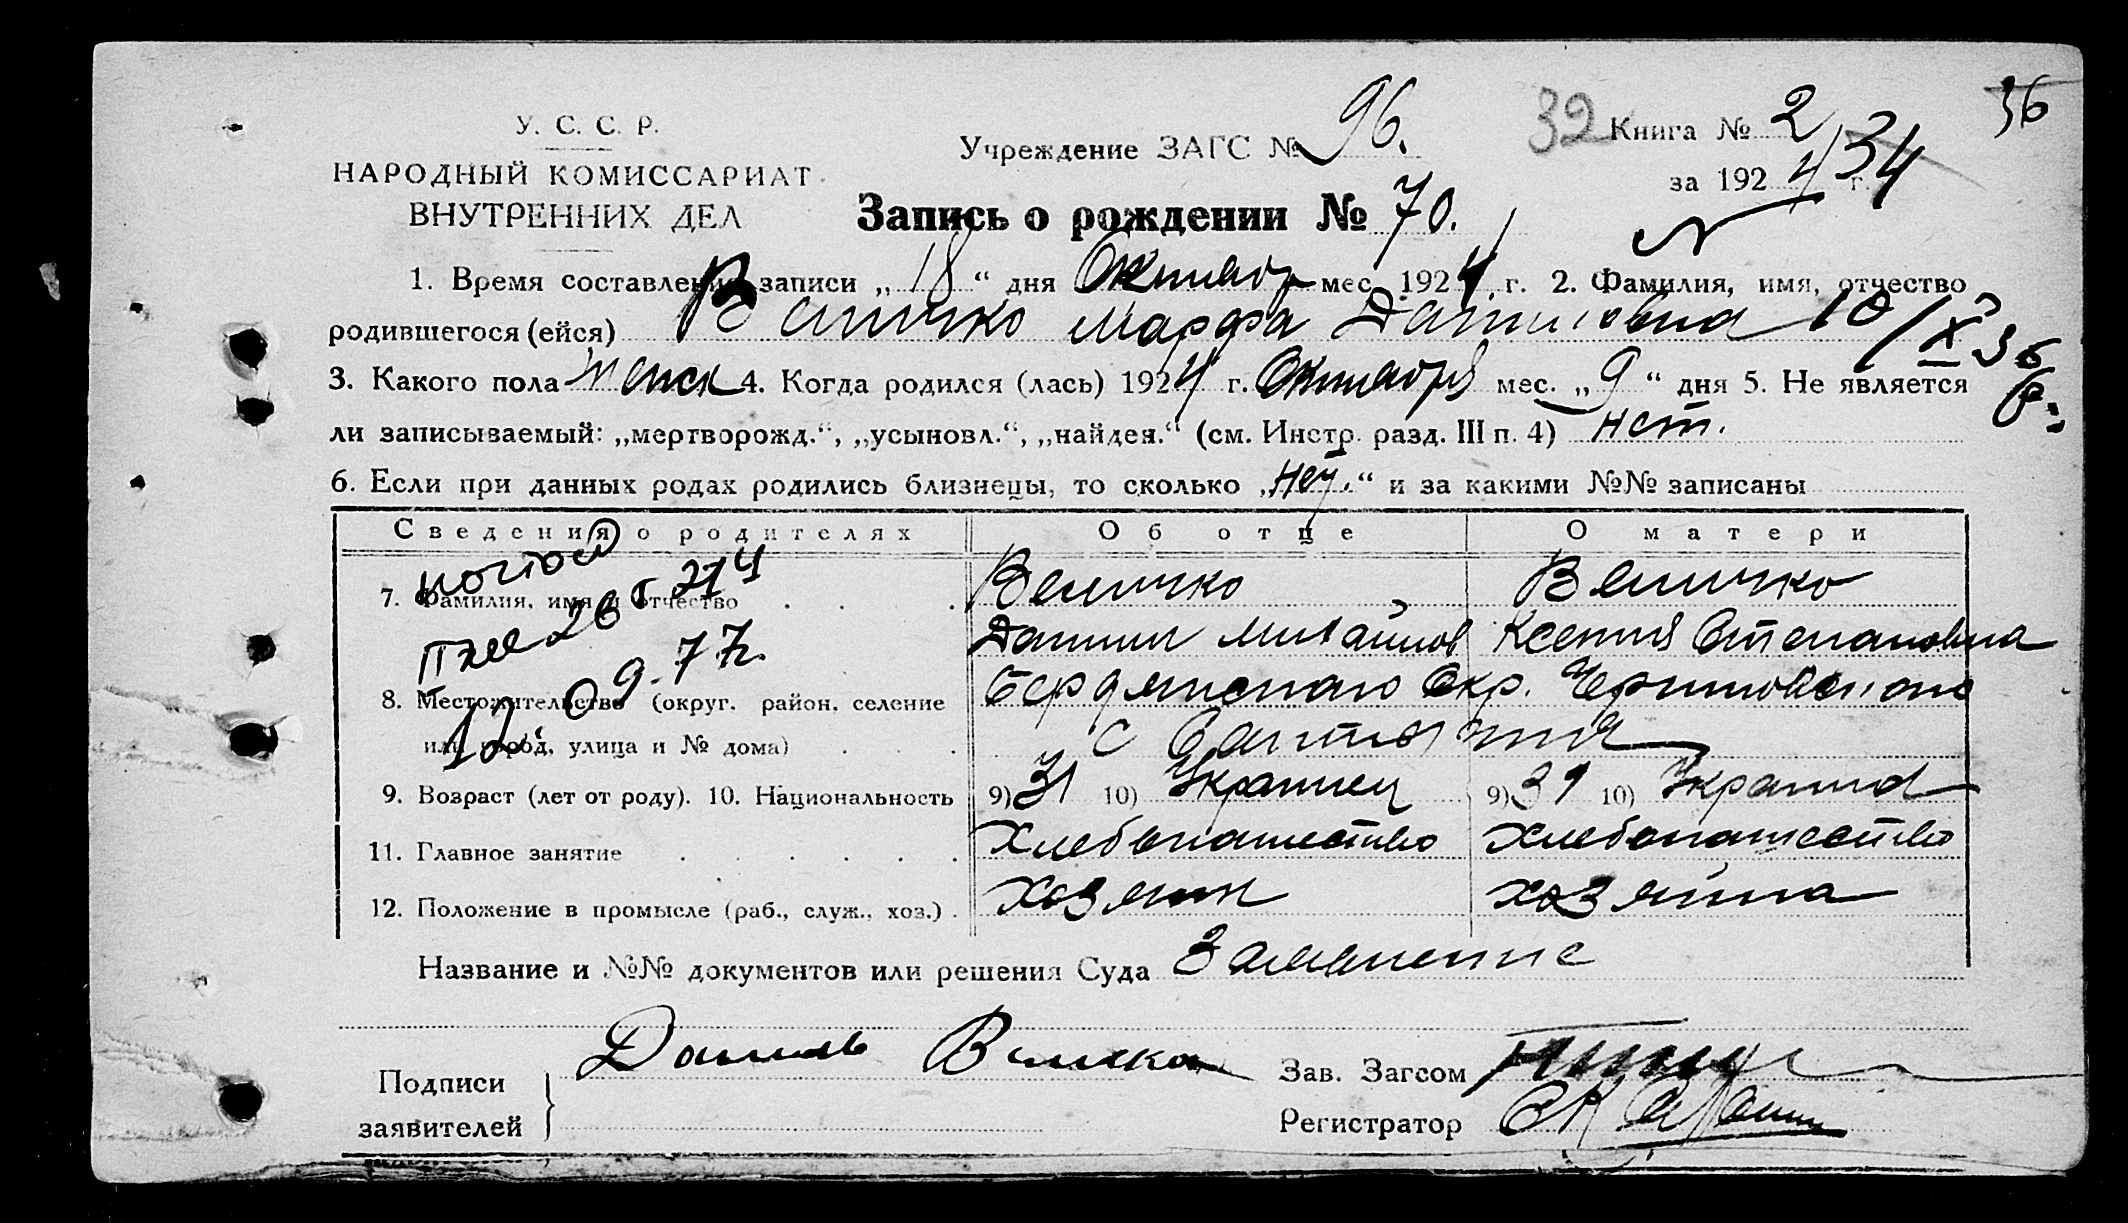 У. С. С. Р.
НАРОДНЫЙ КОМИССАРИАТ
ВНУТРЕННИХ ДЕЛ
Учреждение ЗАГС № 96.
32 Книга № 2 36
за 1924 г. 34
Запись о рождении № 70.
1. Время составления записи „ 18 “ дня Октябр мес. 1924 г. 2. Фамилия, имя, отчество
родившегося (ейся) Величко Марфа Даниловна 10/X 36
3. Какого пола женск 4. Когда родился (лась) 1924 г. Октября мес. „ 9 “ дня 5. Не является
ли записываемый: „мертворожд.“, „усыновл.“, „найден.“ (см. Инстр. разд. III п. 4) нет.
6. Если при данных родах родились близнецы, то сколько „нет.“ и за какими №№ записаны
Сведения о родителях Об отце О матери
7. Фамилия, имя и отчество Величко Величко
Даниил Михайлов Ксения Степановна
12.09.77г.
8. Местожительство (округ. район. селение Бердянского Окр.
или город, улица и № дома) с
9. Возраст (лет от роду). 10. Национальность 9) 31 10) Украинец 9) 31 10) Украинка
11. Главное занятие Хлебопашество Хлебопашество
12. Положение в промысле (раб., служ., хоз.) хозяин хозяйка
Название и №№ документов или решения Суда Заявление
Подписи заявителей Даниль Величко
Зав. Загсом
Регистратор